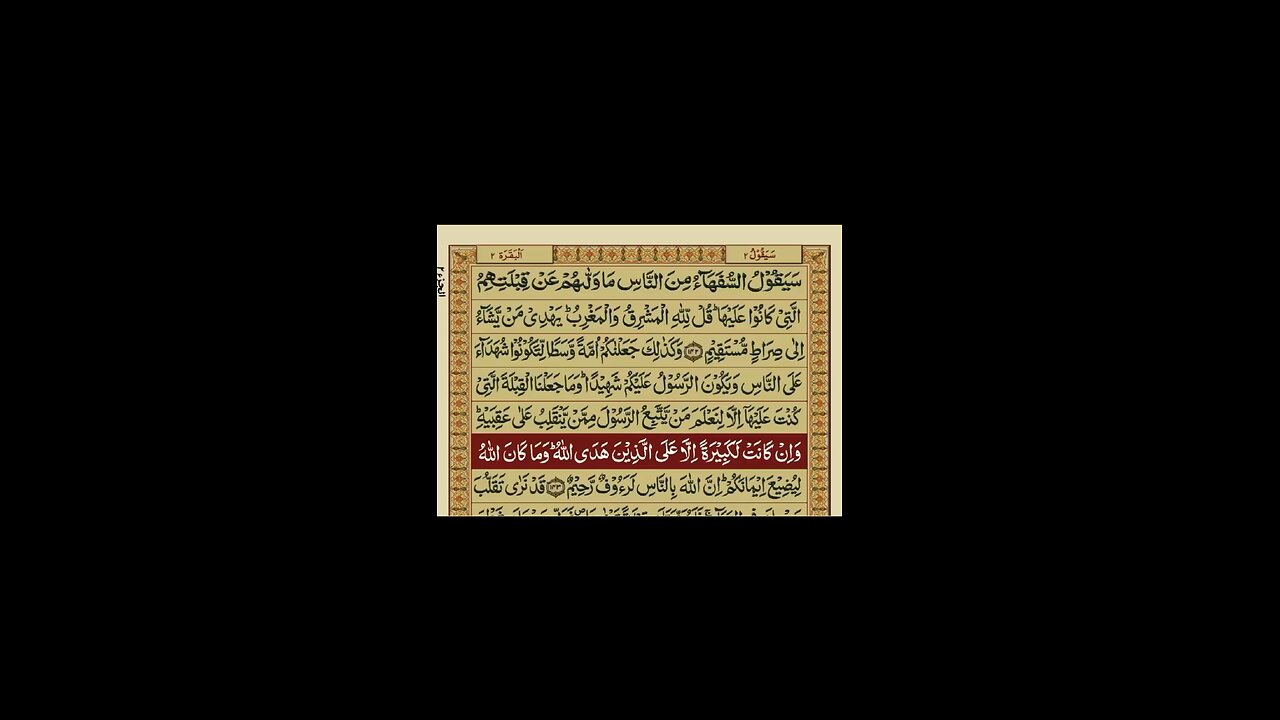 سَيَقُوْلُ ٢
اَلْبَقَرَة ٢
الجزء ٢
سَيَقُوْلُ السُّفَهَآءُ مِنَ النَّاسِ مَا وَلّٰىهُمْ عَنْ قِبْلَتِهِمُ
الَّتِىْ كَانُوْا عَلَيْهَا ؕ قُلْ لِّلّٰهِ الْمَشْرِقُ وَالْمَغْرِبُ ؕ يَهْدِىْ مَنْ يَّشَآءُ
اِلٰى صِرَاطٍ مُّسْتَقِيْمٍ ﴿۱۴۲﴾ وَكَذٰلِكَ جَعَلْنٰكُمْ اُمَّةً وَّسَطًا لِّتَكُوْنُوْا شُهَدَآءَ
عَلَى النَّاسِ وَيَكُوْنَ الرَّسُوْلُ عَلَيْكُمْ شَهِيْدًا ؕ وَمَا جَعَلْنَا الْقِبْلَةَ الَّتِىْ
كُنْتَ عَلَيْهَآ اِلَّا لِنَعْلَمَ مَنْ يَّتَّبِعُ الرَّسُوْلَ مِمَّنْ يَّنْقَلِبُ عَلٰى عَقِبَيْهِ ؕ
وَاِنْ كَانَتْ لَكَبِيْرَةً اِلَّا عَلَى الَّذِيْنَ هَدَى اللّٰهُ ؕ وَمَا كَانَ اللّٰهُ
لِيُضِيْعَ اِيْمَانَكُمْ ؕ اِنَّ اللّٰهَ بِالنَّاسِ لَرَءُوْفٌ رَّحِيْمٌ ﴿۱۴۳﴾ قَدْ نَرٰى تَقَلُّبَ